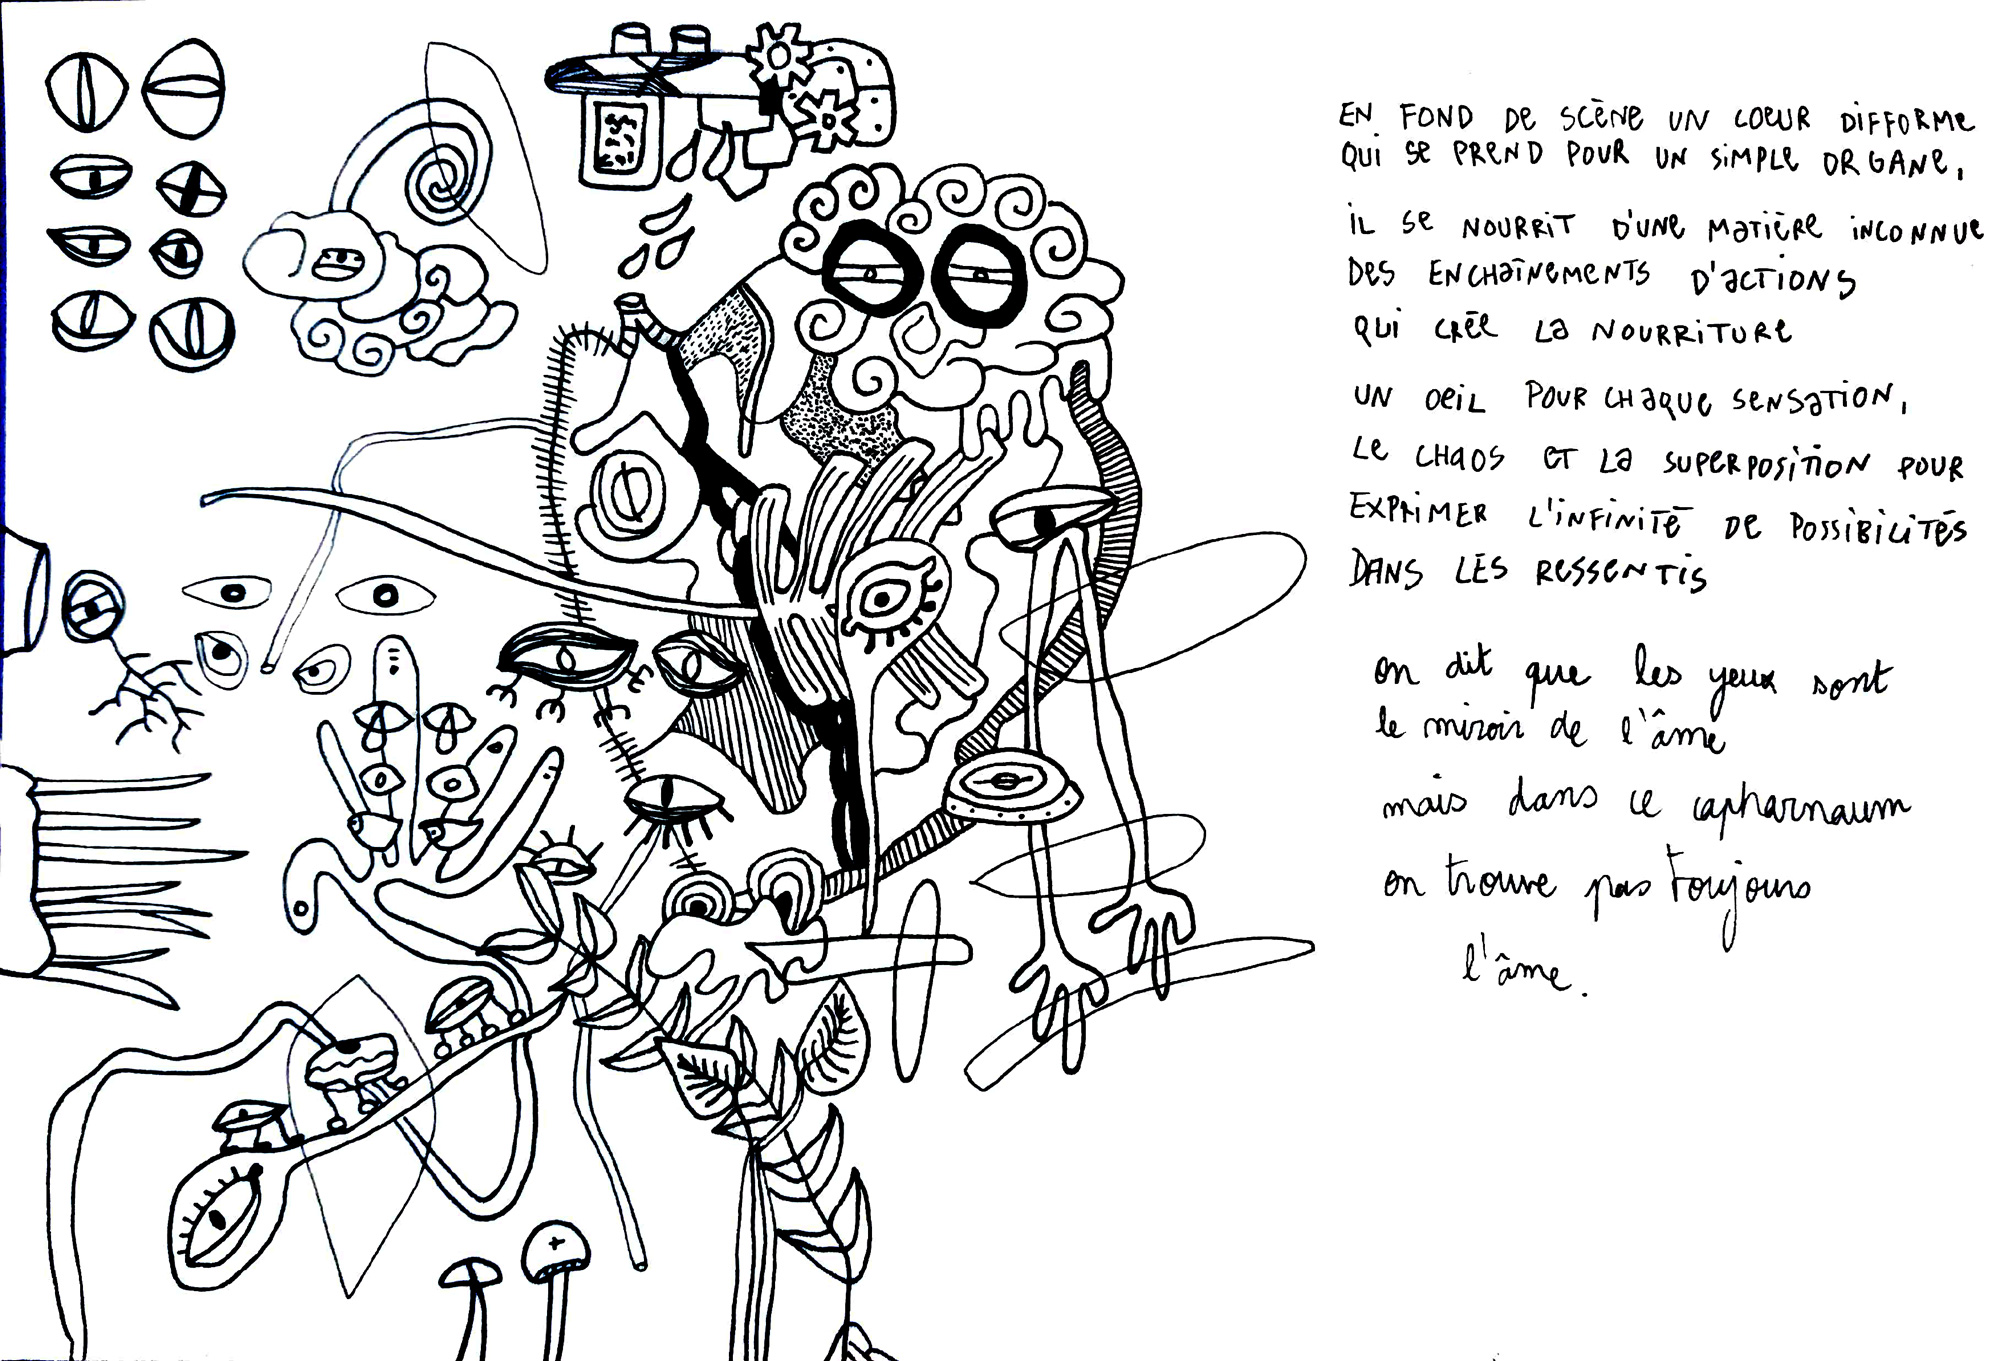 EN FOND DE SCÈNE UN COEUR DIFFORME
QUI SE PREND POUR UN SIMPLE ORGANE,
IL SE NOURRIT D'UNE MATIÈRE INCONNUE
DES ENCHAÎNEMENTS D'ACTIONS
QUI CRÉE LA NOURRITURE
UN OEIL POUR CHAQUE SENSATION,
LE CHAOS ET LA SUPERPOSITION POUR
EXPRIMER L'INFINITÉ DE POSSIBILITÉS
DANS LES RESSENTIS
on dit que les yeux sont
le miroir de l'âme
mais dans ce capharnaum
on trouve pas toujours
l'âme.